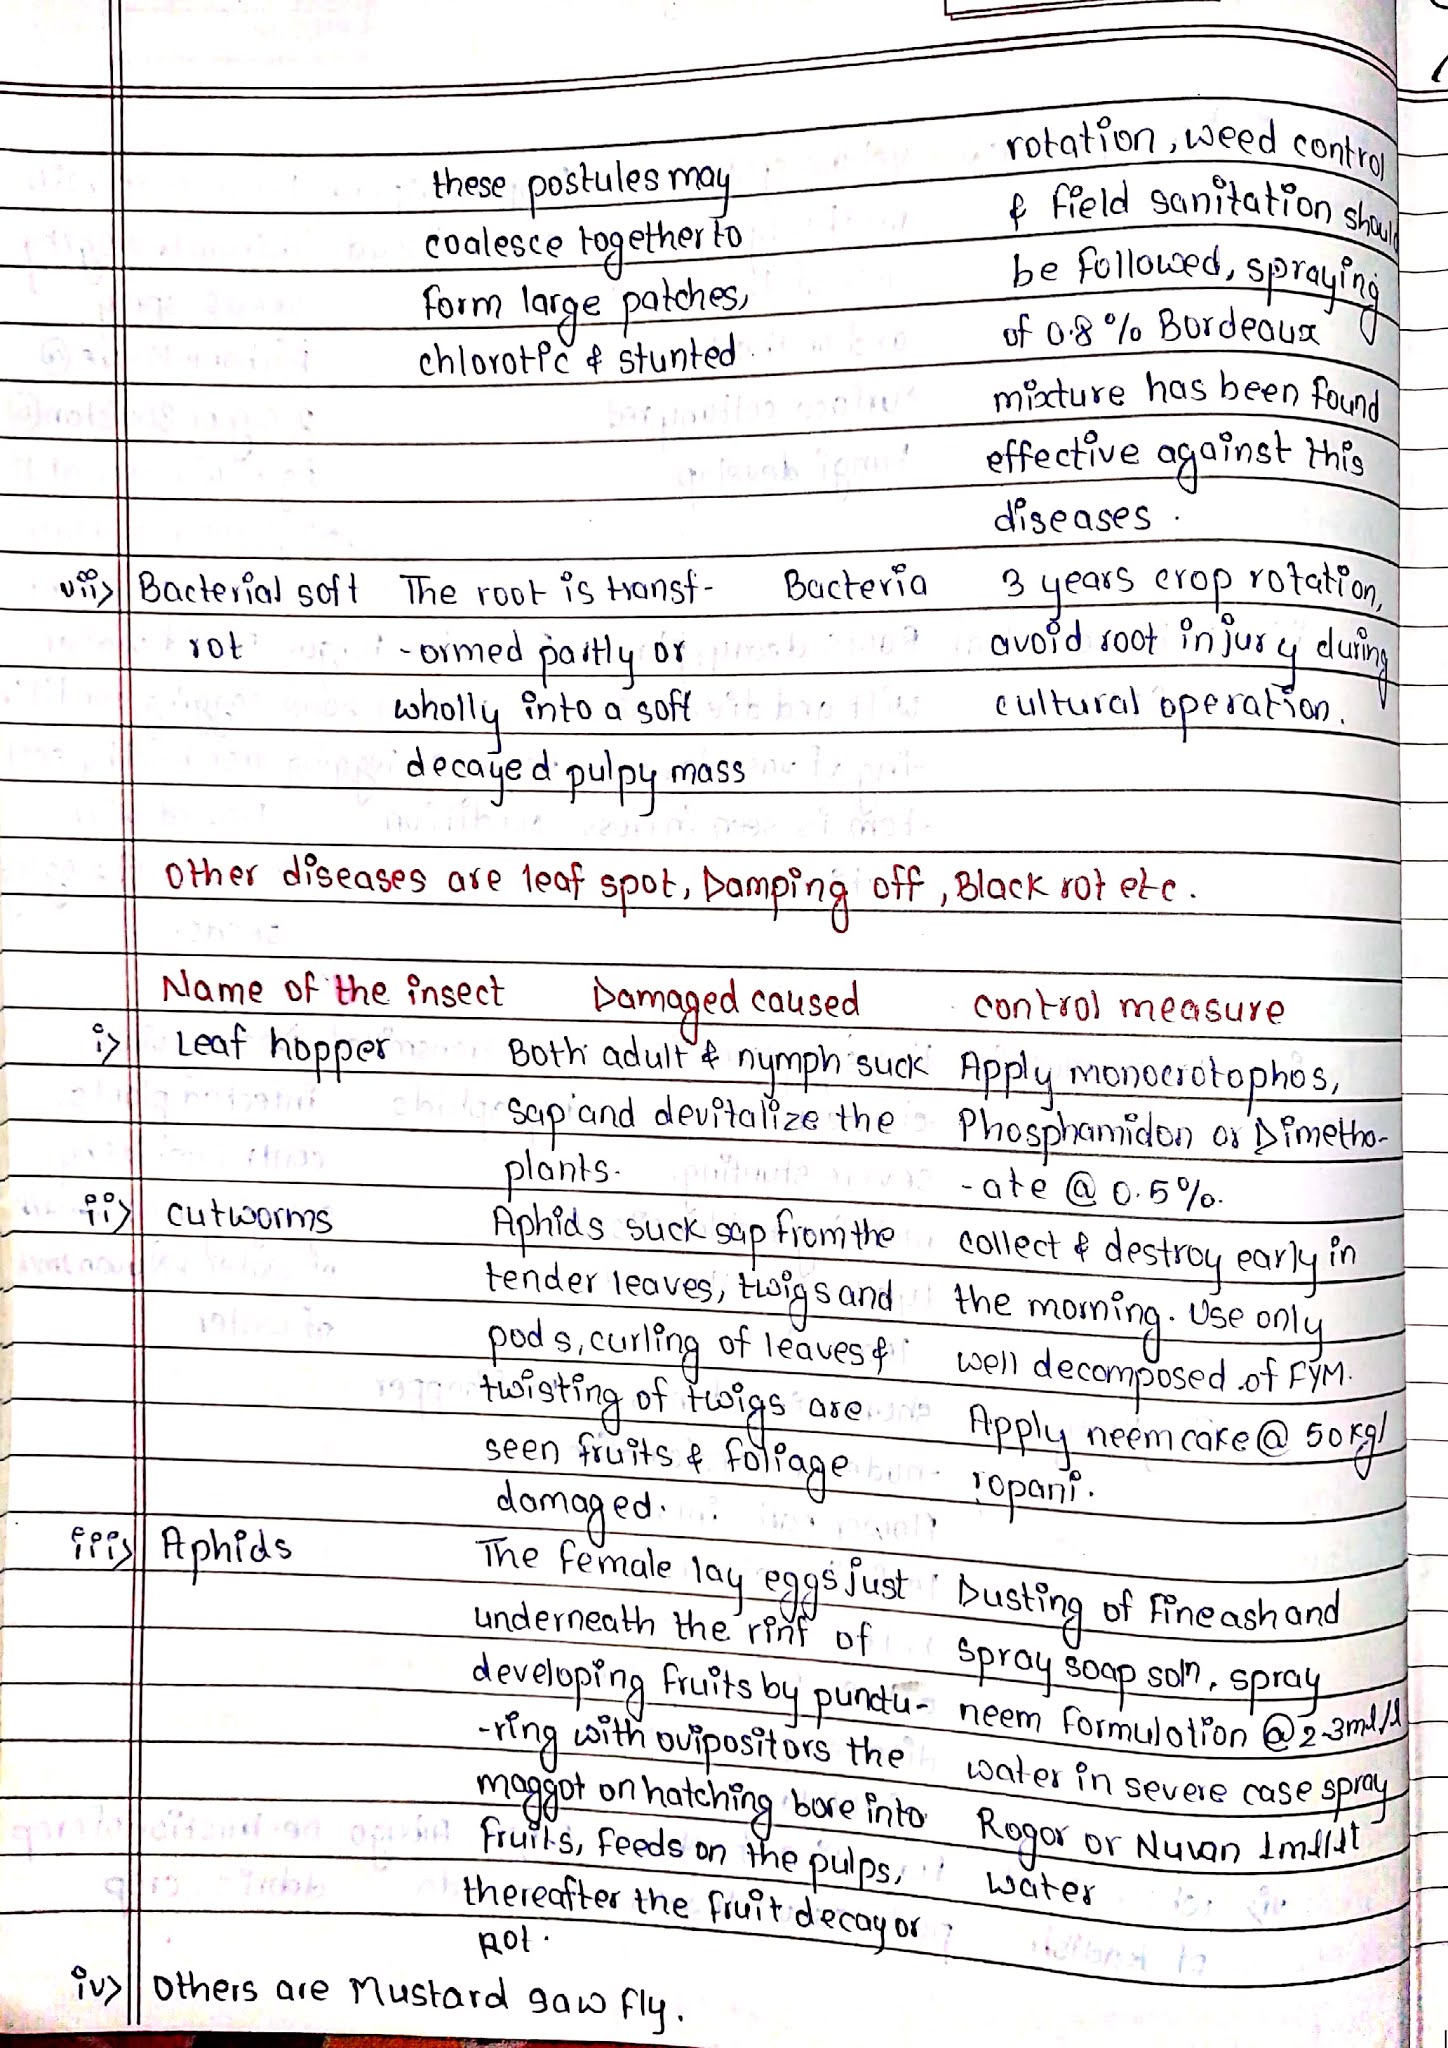 these postules may
coalesce together to
form large patches,
chlorotic & stunted
rotation, weed control
& field sanitation should
be followed, spraying
of 0.8% Bordeaux
mixture has been found
effective against this
diseases.
vii> Bacterial soft
rot
The root is transf-
-ormed partly or
wholly into a soft
decayed pulpy mass
Bacteria
3 years crop rotation,
avoid root injury during
cultural operation.
Other diseases are leaf spot, Damping off, Black rot etc.
Name of the insect Damaged caused control measure
i> Leaf hopper
Both adult & nymph suck
sap and devitalize the
plants.
Apply monocrotophos,
Phosphamidon or Dimetho-
-ate @ 0.5%.
ii> cutworms
Aphids suck sap from the
tender leaves, twigs and
pods, curling of leaves &
twisting of twigs are
seen fruits & foliage
damaged.
collect & destroy early in
the morning. Use only
well decomposed of FYM.
Apply neem cake @ 50kg/
ropani.
iii> Aphids
The female lay eggs just
underneath the rinf of
developing fruits by punctu-
-ring with ovipositors the
maggot on hatching bore into
fruits, feeds on the pulps,
thereafter the fruit decay or
Rot.
Dusting of fine ash and
spray soap soln, spray
neem formulation @ 2-3ml/l
water in severe case spray
Rogor or Nuvan 1ml/lt
water
iv> Others are Mustard saw fly.